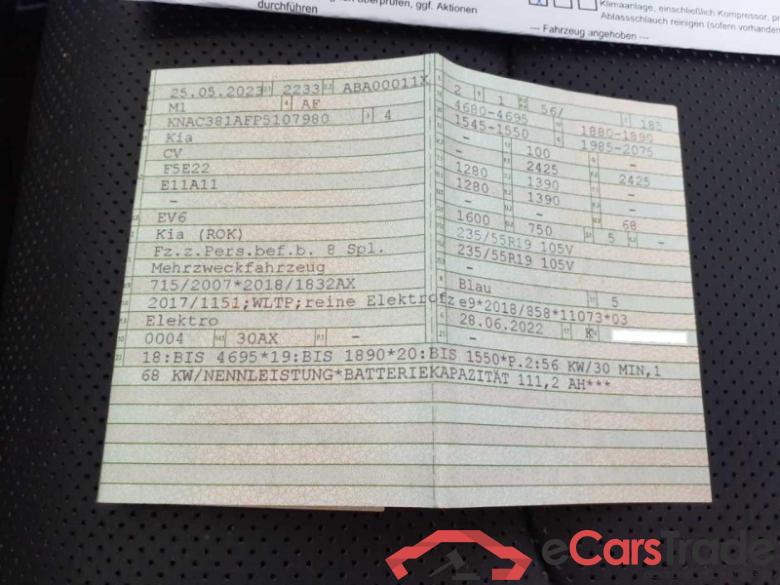 überprüfen, ggf. Aktionen
durchführen
Klimaanlage, einschließlich Kompressor,
Ablassschlauch reinigen (sofern vorhanden
--- Fahrzeug angehoben ---
25.05.2023 2233 ABA00011X
M1 AF
KNAC381AFP5107980 4
Kia
CV
F5E22
E11A11
–
EV6
Kia (ROK)
Fz.z.Pers.bef.b. 8 Spl.
Mehrzweckfahrzeug
715/2007*2018/1832AX
2017/1151;WLTP;reine Elektrofz
Elektro
0004 30AX –
2 1 56/ 185
4680-4695 1880-1890
1545-1550 1985-2075
– 100 –
1280 2425 2425
1280 1390
– 1390 –
1600 750 68
235/55R19 105V 5 –
235/55R19 105V
–
Blau 5
e9*2018/858*11073*03
28.06.2022 K
18:BIS 4695*19:BIS 1890*20:BIS 1550*P.2:56 KW/30 MIN,1
68 KW/NENNLEISTUNG*BATTERIEKAPAZITÄT 111,2 AH***
eCarsTrade